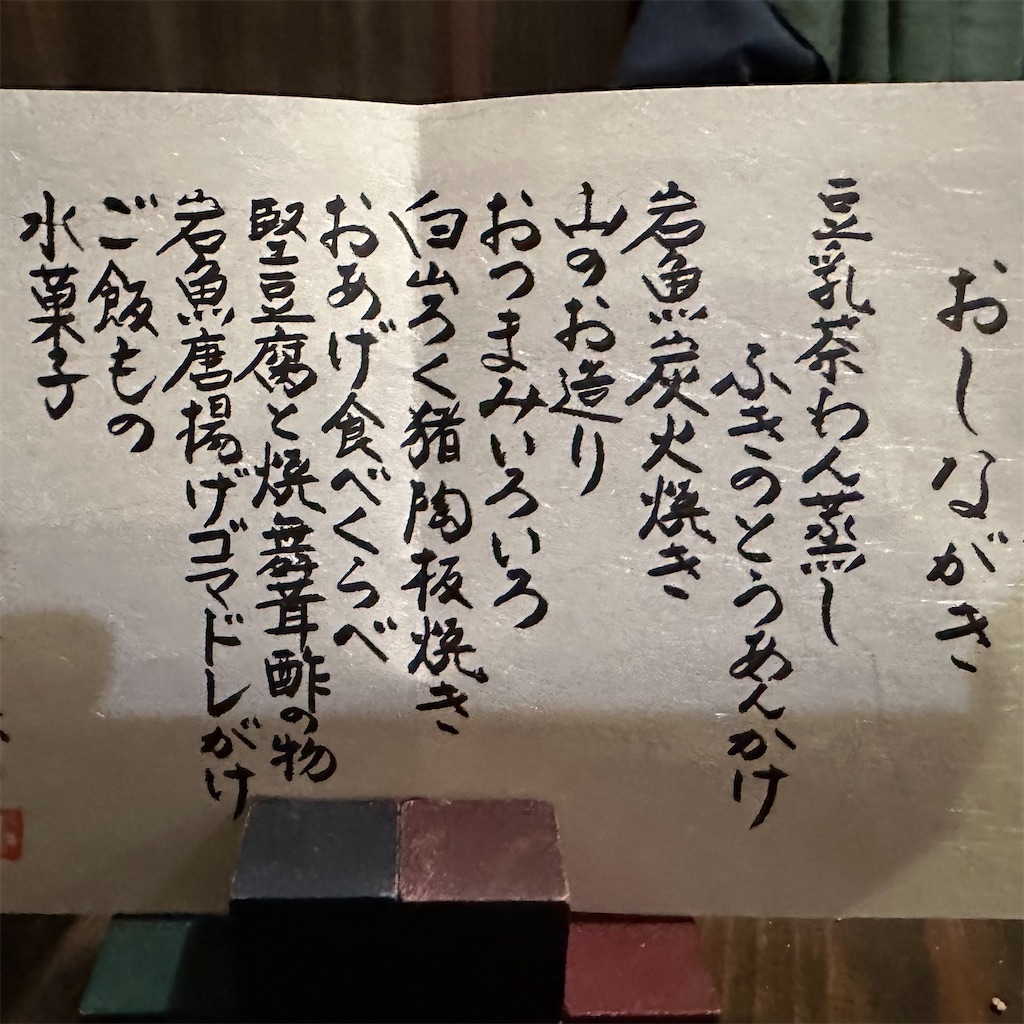 おしながき
豆乳茶わん蒸し
ふきのとうあんかけ
岩魚炭火焼き
山のお造り
おつまみいろいろ
白山ろく猪陶板焼き
おあげ食べくらべ
堅豆腐と焼舞茸酢の物
岩魚唐揚げゴマドレがけ
ご飯もの
水菓子